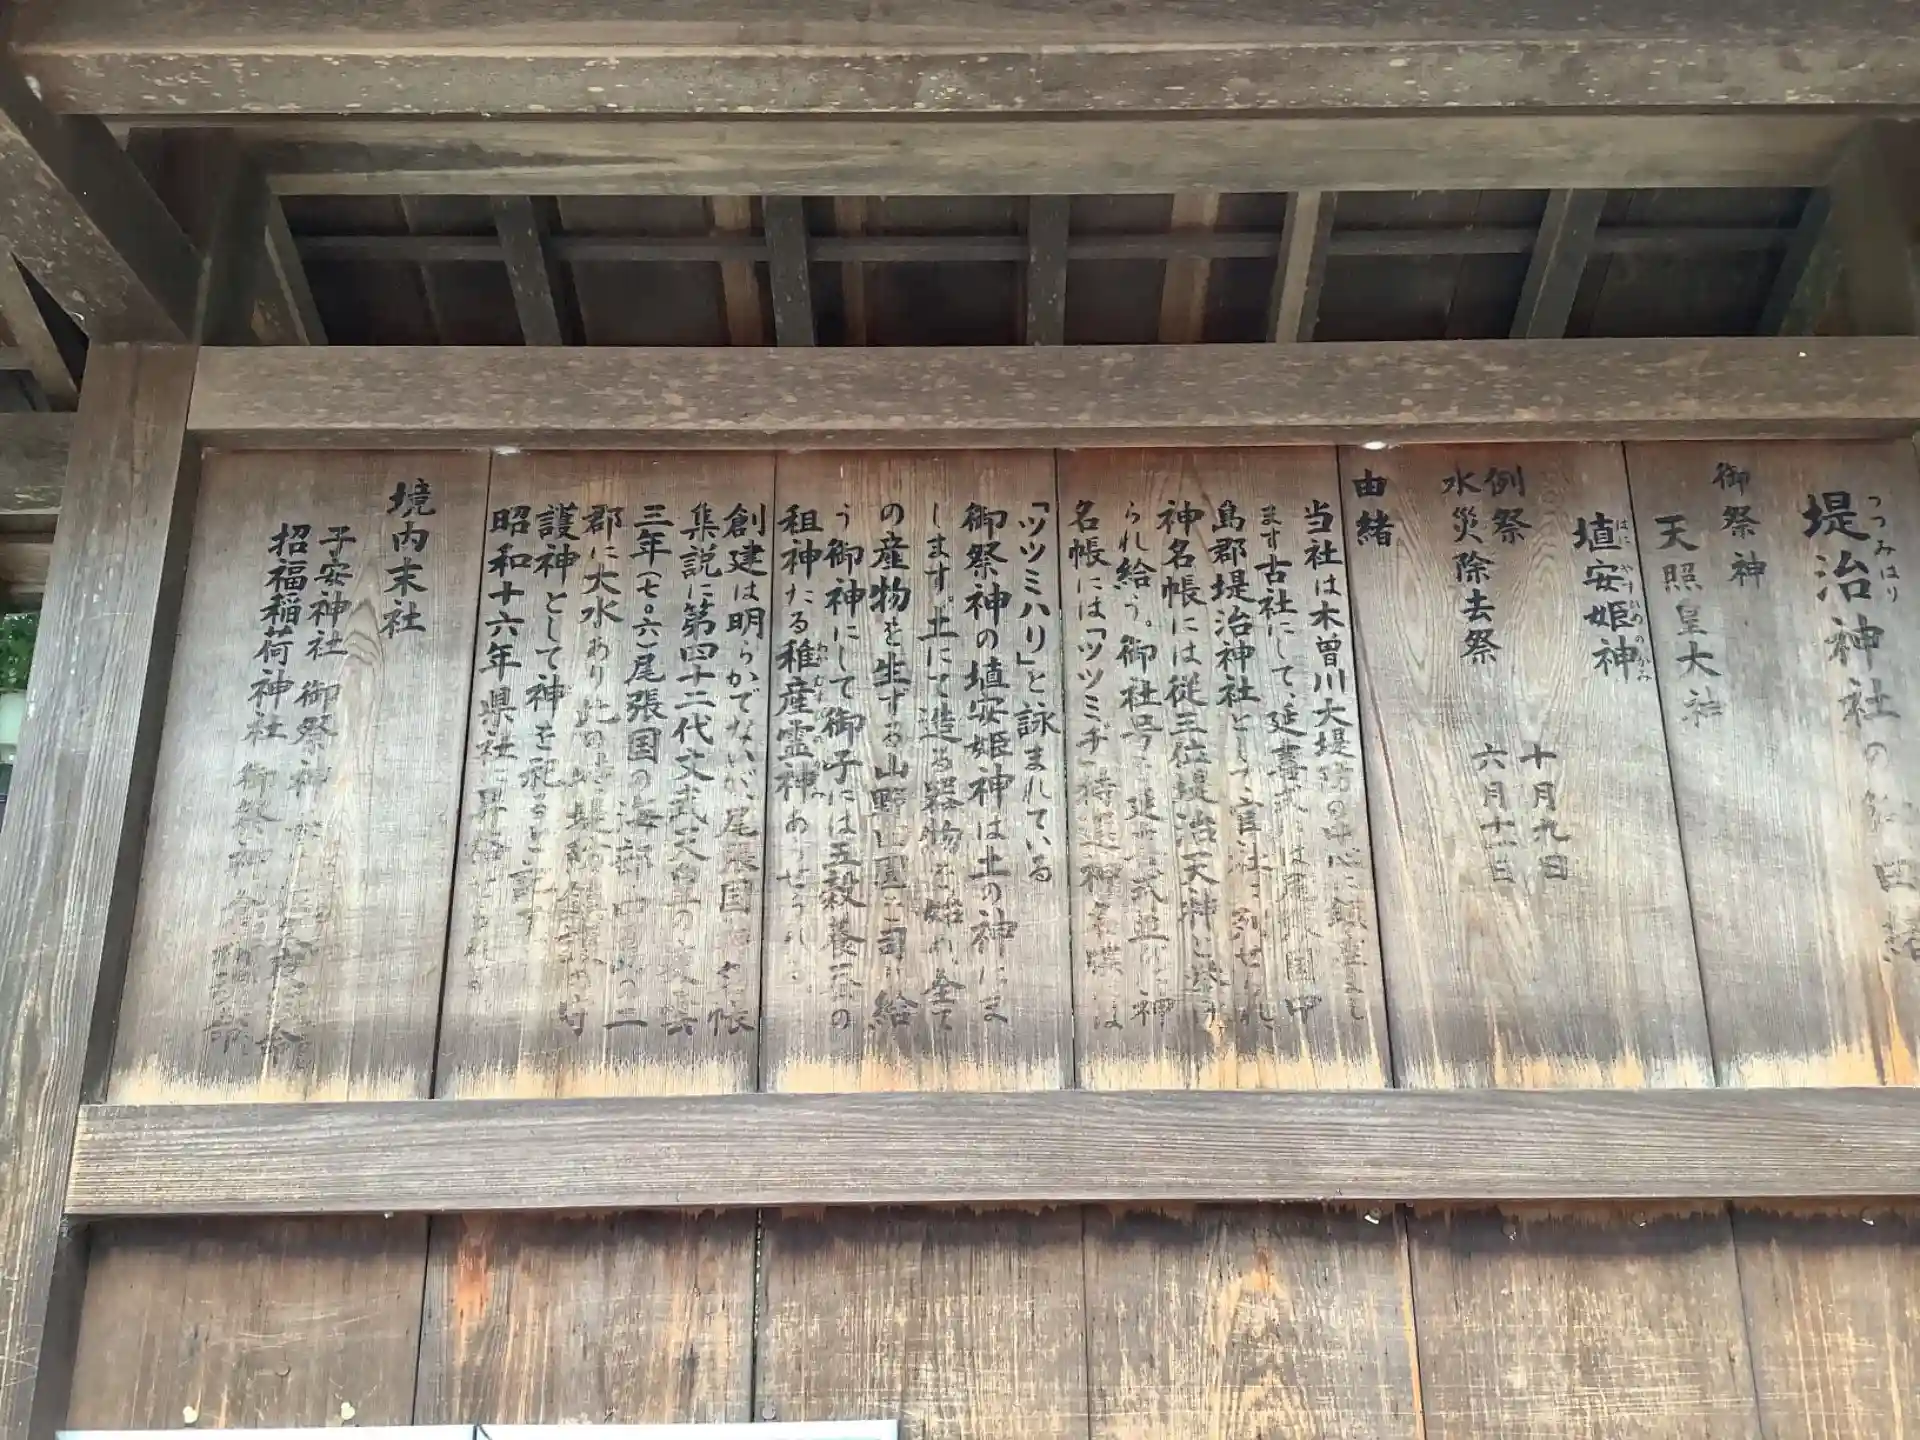 つつみはり
堤治神社の
御祭神
天照皇大神
はにやすひめのかみ
埴安姫神
例祭 十月九日
水災除去祭 六月十一日
由緒
当社は木曽川大堤防の中心に鎮座まし
ます古社にして、延喜式には尾張国中
島郡堤治神社とし、官社に列せられ
神名帳には従三位堤治天神と挙げ
られ給う。御社号を延喜式並に神
名帳には「ツツミチ」特選神名牒には
「ツツミハリ」と詠まれている
御祭神の埴安姫神は土の神にま
します。土にて造る器物を始め全て
の産物を生ずる山野田園を司り給
う御神にして御子には五穀養蚕の
祖神たる稚産霊神あらせられ
創建は明らかでないが、尾張国神名帳
集説に第四十二代文武天皇の慶雲
三年(七〇六)尾張国の海部、中島の二
郡に大水あり此の時堤防鎮護の守
護神として神を祀ると記す
昭和十六年県社に昇格せられ
境内末社
子安神社 御祭神
招福稲荷神社 御祭神